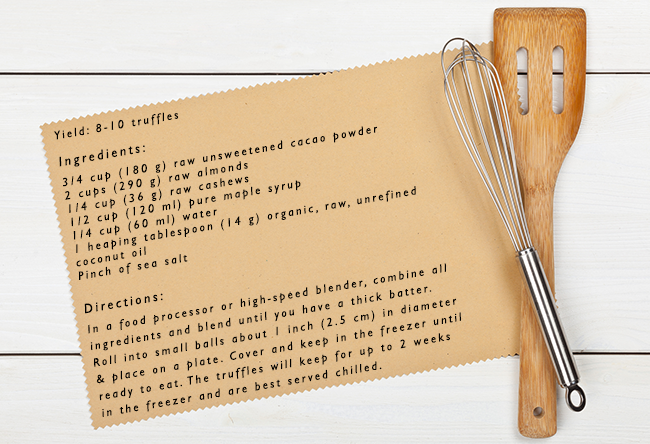 Yield: 8-10 truffles
Ingredients:
3/4 cup (180 g) raw unsweetened cacao powder
2 cups (290 g) raw almonds
1/4 cup (36 g) raw cashews
1/2 cup (120 ml) pure maple syrup
1/4 cup (60 ml) water
1 heaping tablespoon (14 g) organic, raw, unrefined
coconut oil
Pinch of sea salt
Directions:
In a food processor or high-speed blender, combine all
ingredients and blend until you have a thick batter.
Roll into small balls about 1 inch (2.5 cm) in diameter
& place on a plate. Cover and keep in the freezer until
ready to eat. The truffles will keep for up to 2 weeks
in the freezer and are best served chilled.